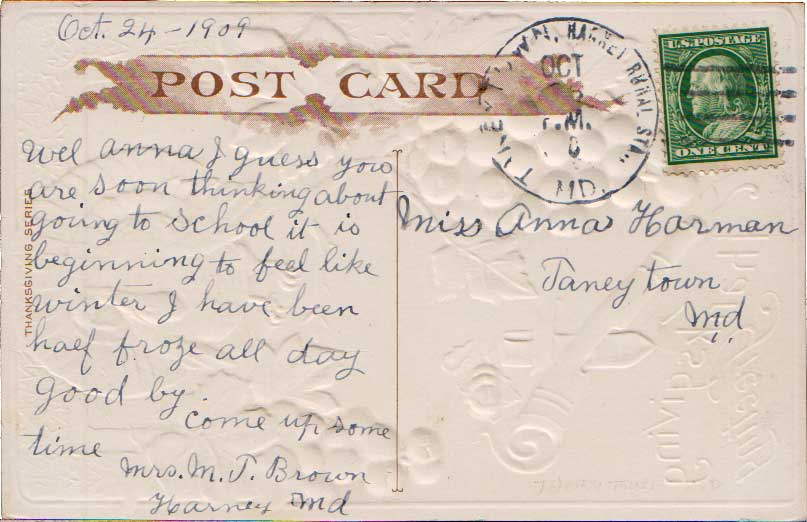 Oct. 24 - 1909
POST CARD
U.S. POSTAGE
ONE CENT
TANEYTOWN, HARNEY RURAL STA.,
OCT
P.M.
MD.
THANKSGIVING SERIES
Wel Anna I guess you
are soon thinking about
going to school it is
beginning to feel like
winter I have been
half froze all day
good by.
come up some
time
Mrs. M. T. Brown
Harney Md
Miss Anna Harman
Taneytown
Md
Thanksgiving